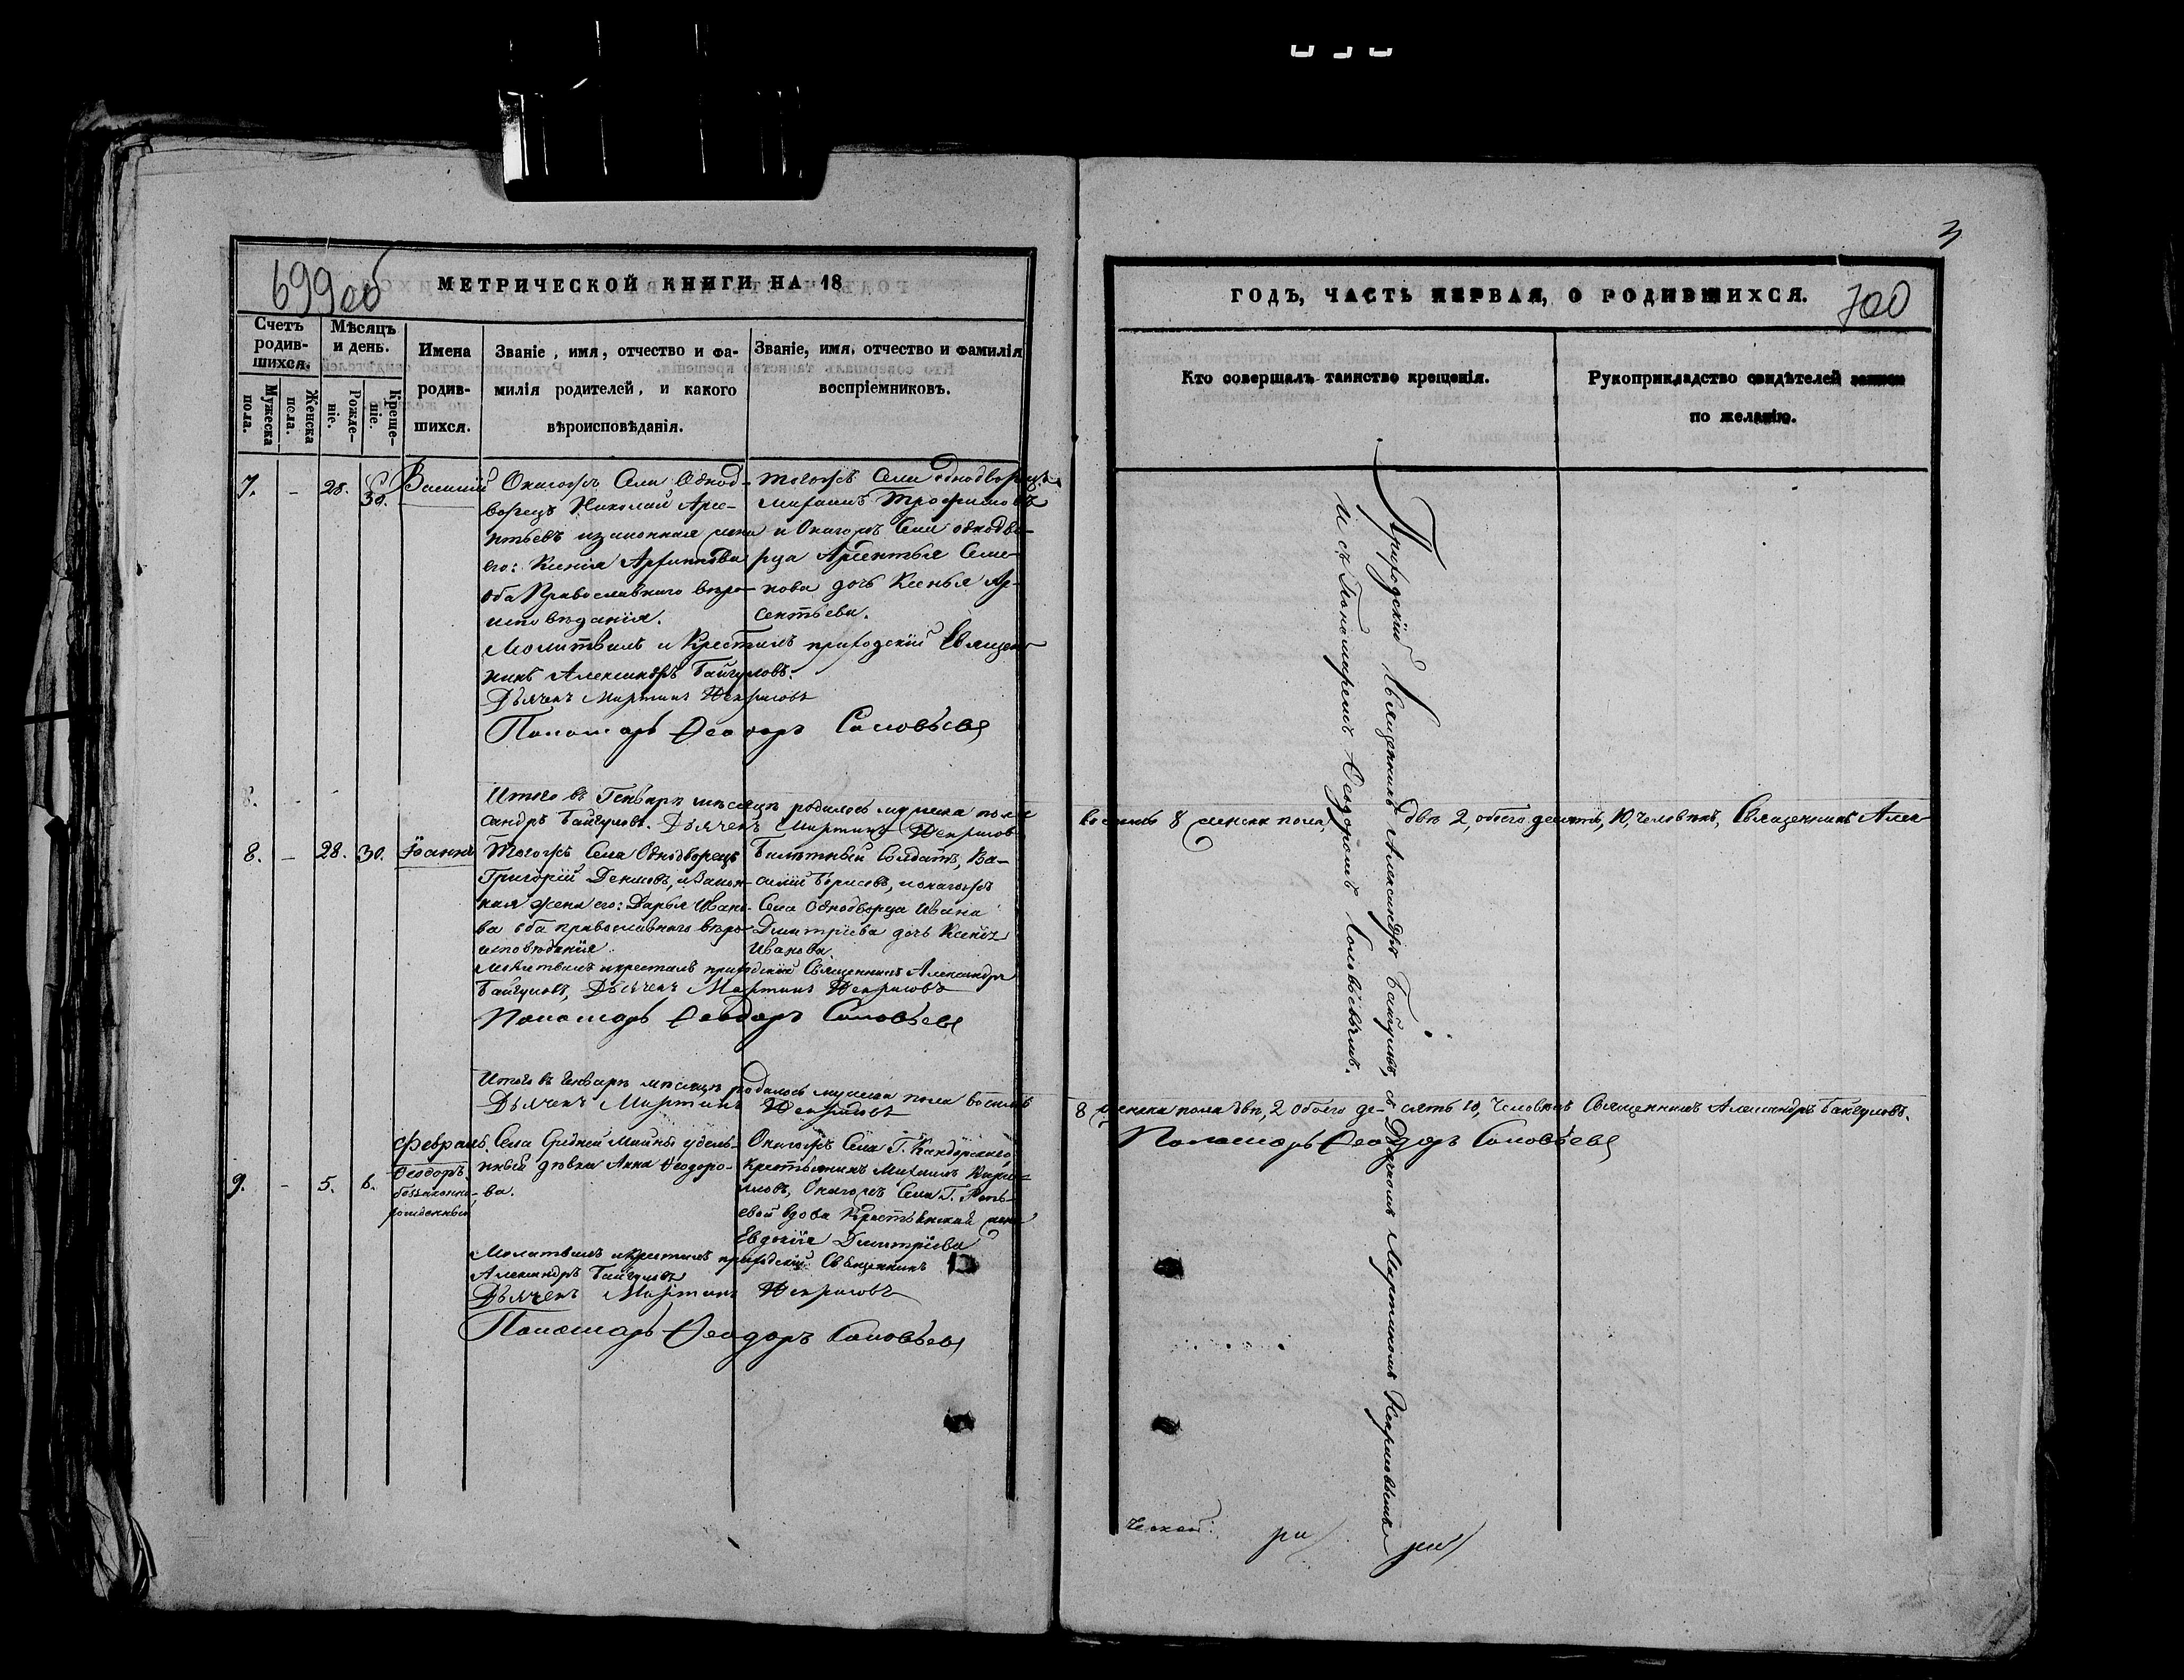 699об
МЕТРИЧЕСКОЙ КНИГИ НА 18
Счетъ родив-шихся.
Мужеска пола.
Женска пола.
Мѣсяцъ и день.
Рожде-ніе.
Креще-ніе.
Имена родив-шихся.
Званіе, имя, отчество и фа-
милія родителей, и какого
вѣроисповѣданія.
Званіе, имя, отчество и фамилія
воспріемниковъ.
7. - 28. 30. Василій
Онагожъ Села Однод-
ворецъ Николай Арсе-
нтьевъ изаконная жена
его: Ксенія
оба Православнаго вѣро-
исповѣданія.
Тогожъ Села однодворецъ
Трофимовъ
и Онагожъ Села однодво-
рца Арсентья Семе-
нова дочь Ксенья Ар-
сентьева.
Молитвилъ и Крестилъ приходскій Священ-
никъ Александръ Байгуловъ.
Дьячекъ Мартинъ Некрасовъ
Пономарь Ѳеодоръ Соловьевъ
8. - -
Итого въ Генварѣ мѣсяцѣ родилось мужеска пола
сандръ Байгуловъ. Дьячекъ Мартинъ Некрасовъ
8. - 28. 30. Іоаннъ
Тогожъ Села Однодворецъ
Григорій изакон-
ная жена его: Дарья Ивано-
ва оба православнаго вѣро-
исповѣданія
Билетный Солдатъ, Ва-
силій Борисовъ, ионагожъ
Села Однодворца Ивана
Дмитріева дочь Ксенія
Иванова
Молитвилъ икрестилъ приходскій Священникъ Александръ
Байгуловъ, Дьячекъ Мартинъ Некрасовъ
Пономарь Ѳеодоръ Соловьевъ
Итого въ Генварѣ мѣсяцѣ родилось мужеска пола восемь
Дьячекъ Мартинъ Некрасовъ
Февраль.
9. - 5. 6. Ѳеодоръ
беззаконно-
рожденный
Села Средней Майны удѣль-
ный дѣвка Анна Ѳеодоро-
ва.
Онагожъ Села Г.
крестьянинъ Михаилъ Кири-
ловъ, Онагожъ Села Г.
вдова Крестьянская жена
Евдокія Дмитріева
Молитвилъ икрестилъ приходскій Священникъ
Александръ Байгуловъ
Дьячекъ Мартинъ Некрасовъ
Пономарь Ѳеодоръ Соловьевъ
3
ГОДЪ, ЧАСТЬ ПЕРВАЯ, О РОДИВШИХСЯ.
700
Кто совершалъ таинство крещенія.
Рукоприкладство свидѣтелей записи
по желанію.
Приходскій Священникъ Александръ Байгуловъ, съ Дьячкомъ Мартиномъ Некрасовымъ
и съ Пономаремъ Ѳеодоромъ Соловьевымъ.
восемь 8 женска пола, двѣ 2, обоего десять, 10, человѣкъ, Священникъ Алек-
8 женска пола двѣ, 2 обоего де-сять 10, Человѣкъ Священникъ Александръ Байгуловъ.
Пономарь Ѳеодоръ Соловьевъ